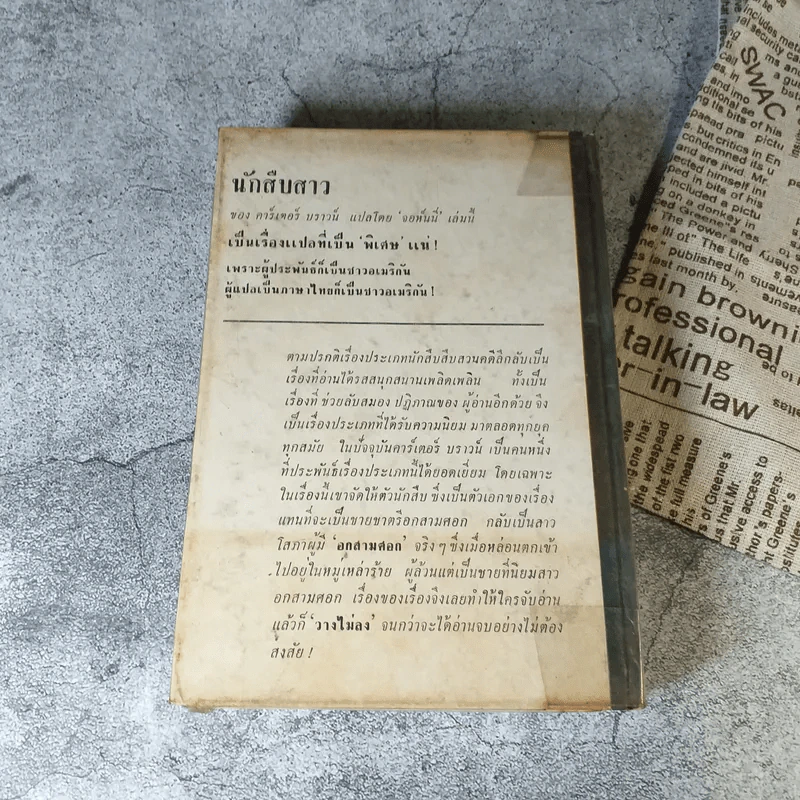 นักสืบสาว
ของ คาร์เตอร์ บราวน์ แปลโดย 'จอห์นนี่' เล่มนี้
เป็นเรื่องแปลที่เป็น 'พิเศษ' แน่!
เพราะผู้ประพันธ์ก็เป็นชาวอเมริกัน
ผู้แปลเป็นภาษาไทยก็เป็นชาวอเมริกัน!
ตามปรกติเรื่องประเภทนักสืบสืบสวนคดีลึกลับเป็น
เรื่องที่อ่านได้รสสนุกสนานเพลิดเพลิน ทั้งเป็น
เรื่องที่ ช่วยลับสมอง ปฏิภาณของ ผู้อ่านอีกด้วย จึง
เป็นเรื่องประเภทที่ได้รับความนิยม มาตลอดทุกยุค
ทุกสมัย ในปัจจุบันคาร์เตอร์ บราวน์ เป็นคนหนึ่ง
ที่ประพันธ์เรื่องประเภทนี้ได้ยอดเยี่ยม โดยเฉพาะ
ในเรื่องนี้เขาจัดให้ตัวนักสืบ ซึ่งเป็นตัวเอกของเรื่อง
แทนที่จะเป็นชายชาตรีอกสามศอก กลับเป็นสาว
โสภาผู้มี 'อกสามศอก' จริงๆ ซึ่งเมื่อหล่อนตกเข้า
ไปอยู่ในหมู่เหล่าร้าย ผู้ล้วนแต่เป็นชายที่นิยมสาว
อกสามศอก เรื่องของเรื่องจึงเลยทำให้ใครจับอ่าน
แล้วก็ 'วางไม่ลง' จนกว่าจะได้อ่านจบอย่างไม่ต้อง
สงสัย!
SWAC
bits of his
but critics in En
on a donkey in
The Power and
" The Life
published in
last month by.
gain brownin
rofessional
talking
er-in-law
one that
the widespread
of the fist two
full measure
of Greene's
that Mr.
access to
thor's papers-